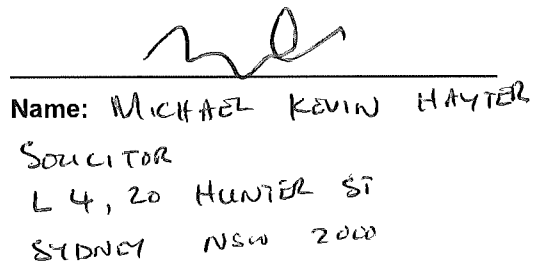 Name: MICHAEL KEVIN HAYTER
SOLICITOR
L 4, 20 HUNTER ST
SYDNEY NSW 2000